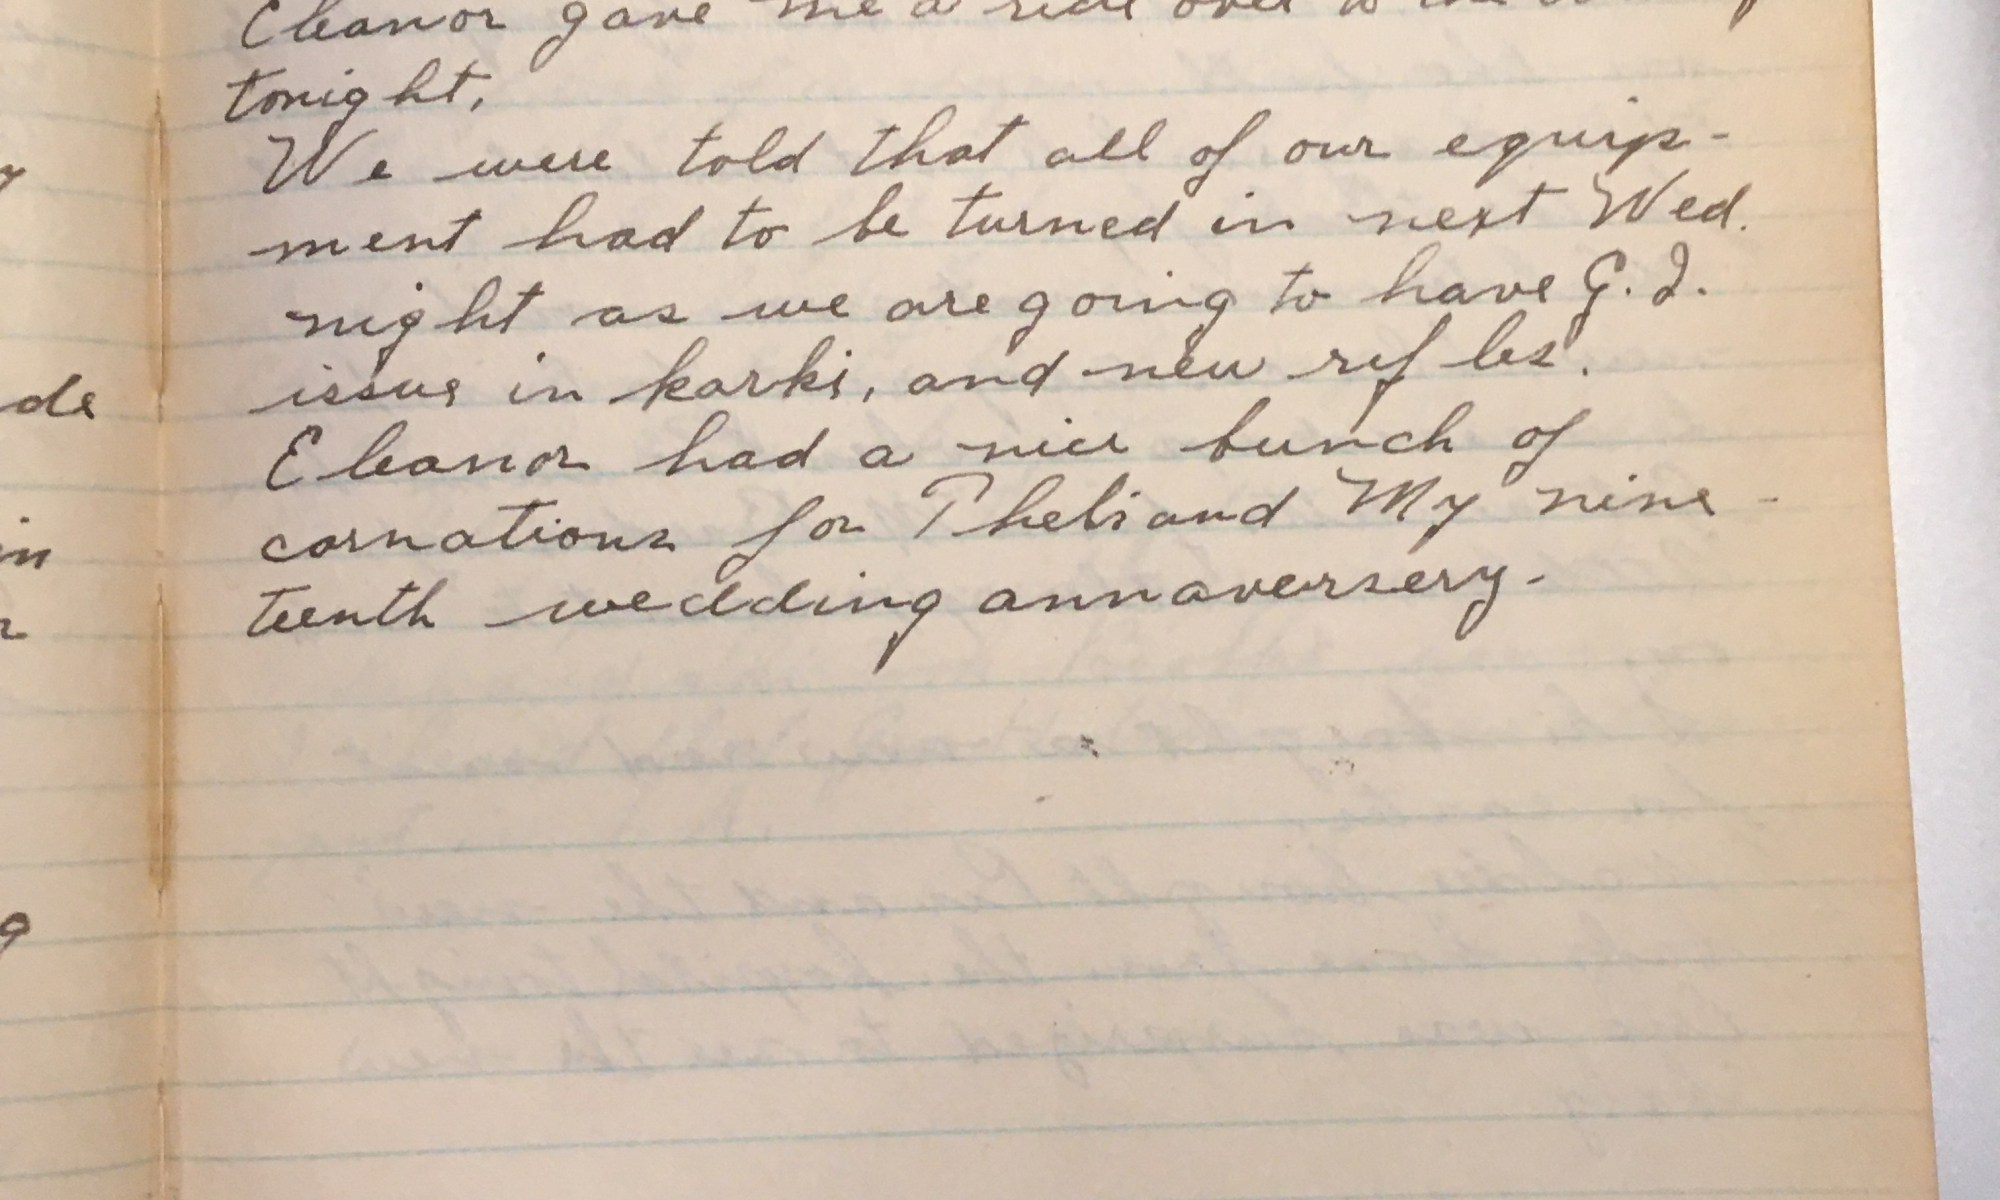 Eleanor gave me a ride over to the
tonight.
We were told that all of our equip-
ment had to be turned in next Wed.
night as we are going to have G.I.
issue in karki, and new rifles.
Eleanor had a nice bunch of
carnations for Phebi and My nine-
teenth wedding annaversery.
de
in